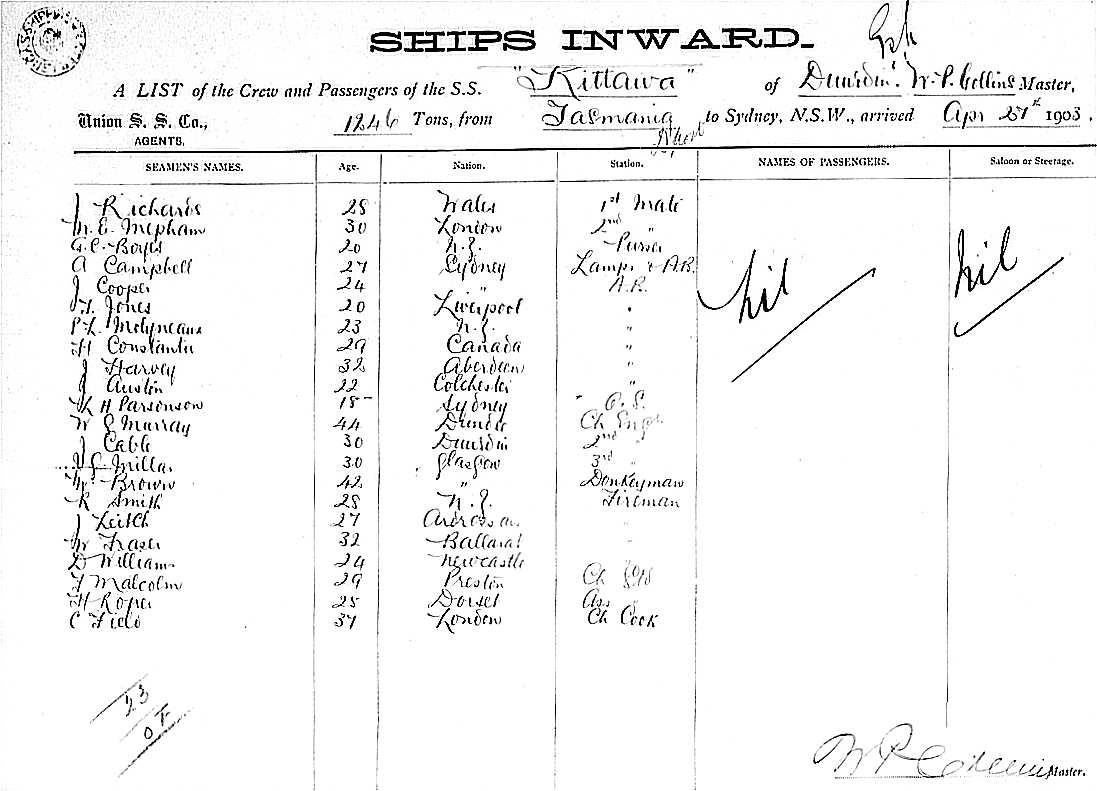 SHIPS INWARD.
A LIST of the Crew and Passengers of the S.S. "Kittawa" of Dunedin. W. P. Collins Master,
Union S. S. Co., 1246 Tons, from Tasmania to Sydney, N.S.W., arrived Apr 27th 1903.
AGENTS,
SEAMEN'S NAMES. Age. Nation. Station. NAMES OF PASSENGERS. Saloon or Steerage.
J Richards 28 Wales 1st Mate
M. E. Mepham 30 London 2nd "
G. C. Boyes 20 N.Z. Purser
A Campbell 27 Sydney Lamps & A.B.
J Cooper 24 " A.B.
Jones 20 Liverpool "
Molyneaux 23 N.Z. "
H Constantu 29 Canada "
J Harvey 32 Aberdeen "
J Austin 22 Colchester "
H Parsonson 18 Sydney O.S.
W Murray 44 Dundee Ch Engr
J Cable 30 Dunedin 2nd "
Millar 30 Glasgow 3rd "
Brown 42 " Donkeyman
R Smith 28 N.Z. Fireman
J Leitch 27 "
W Fraser 32 Ballarat "
D Williams 24 Newcastle
Malcolm 29 Preston Ch
H Roper 25 Dorset Ass "
C Field 37 London Ch Cook
Nil Nil
23
W P Collins Master.